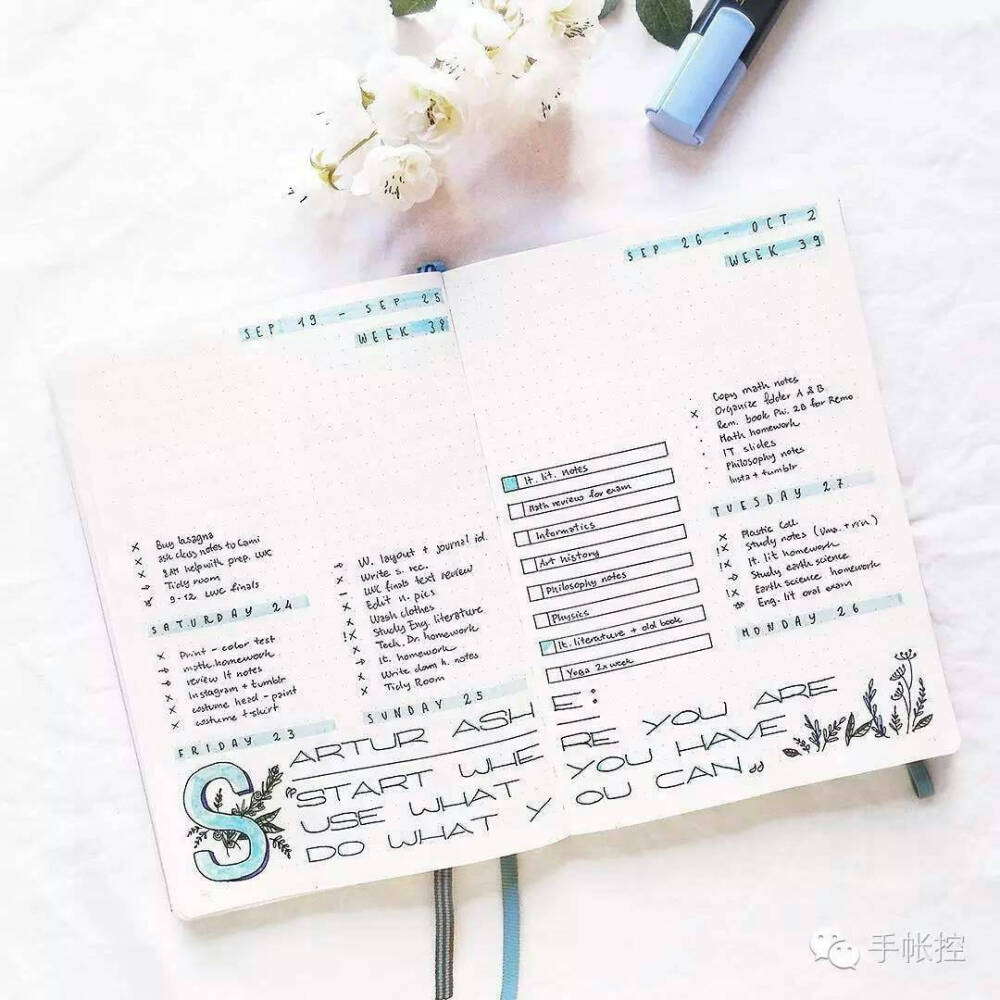 SEP 19 - SEP 25
WEEK 38
x Buy lasagna
x ask class notes to Cami
x SAM help with prep. LWC
→ Tidy room
x 9-12 LWC finals
SATURDAY 24
x Print - color test
→ math homework
→ review It notes
x Instagram + tumblr
x costume head - paint
x costume t-shirt
FRIDAY 23
→ W. layout + journal id.
x Write s. rec.
- LWC finals text review
x Edit n. pics
x Wash clothes
!x Study Eng. literature
x Tech. Dr. homework
→ It. homework
x Write down h. notes
x Tidy Room
SUNDAY 25
SEP 26 - OCT 2
WEEK 39
It. lit. notes
Math review for exam
Informatics
Art history
Philosophy notes
Physics
It. literature + old book
Yoga 2x week
· Copy math notes
x Organize folder A & B
· Rem. book Pw. 2B for Remo
· Math homework
· IT slides
· Philosophy notes
· Insta + tumblr
TUESDAY 27
x Plastic Coll.
!x Study notes
!x It. lit homework
→ Study earth science
!x Earth science homework
→ Eng. lit oral exam
MONDAY 26
S
ARTUR ASHE:
"START WHERE YOU ARE
USE WHAT YOU HAVE
DO WHAT YOU CAN"
手帐控